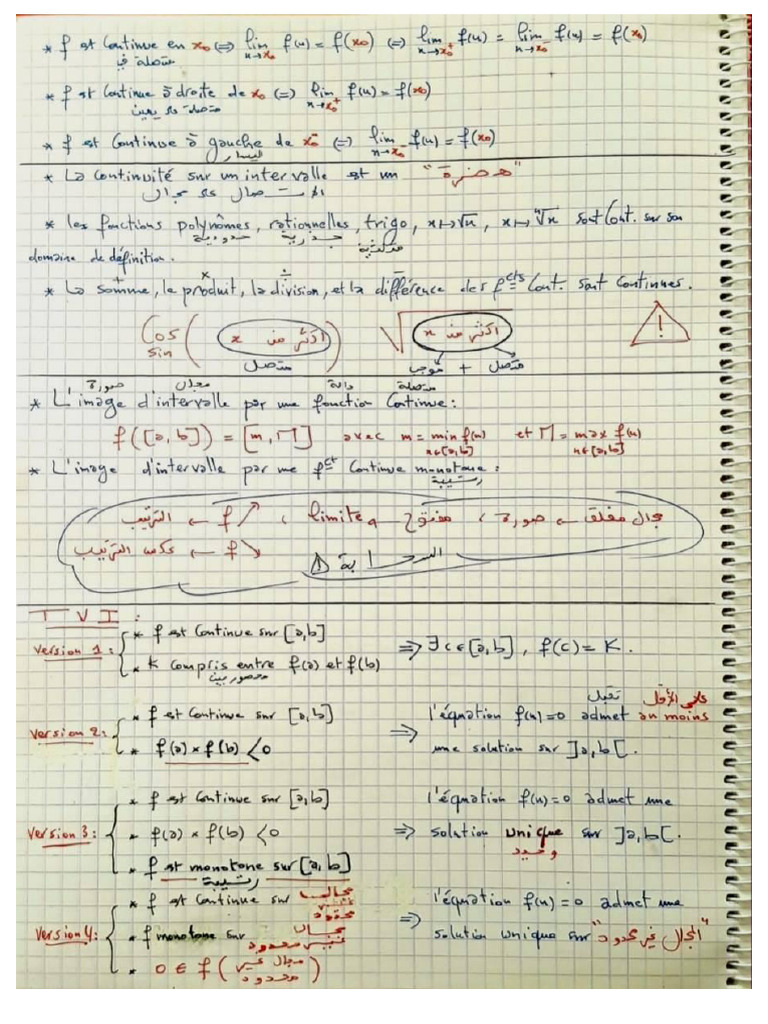 * f est Continue en x₀ ⇔ lim x→x₀ f(x) = f(x₀) ⇔ lim x→x₀⁺ f(x) = lim x→x₀⁻ f(x) = f(x₀)
متصلة في
* f est Continue à droite de x₀ ⇔ lim x→x₀⁺ f(x) = f(x₀)
متصلة على يمين
* f est Continue à gauche de x₀ ⇔ lim x→x₀⁻ f(x) = f(x₀)
اليسار
* La Continuité sur un intervalle est un "هضرة"
الاتصال على مجال
* les fonctions polynômes, rationnelles, trigo, x↦√x, x↦ⁿ√x sont Cont. sur son
حدودية جذرية مثلثية
domaine de définition.
+ × ÷ −
* La somme, le produit, la division, et la différence des fcts Cont. sont Continues.
Cos sin ( اكثر من x ) √ اكثر من x !
متصل موجب + متصل
صورة مجال دالة متصلة
* L'image d'intervalle par une fonction Continue:
f([a,b]) = [m,M] avec m = min f(x) x∈[a,b] et M = max f(x) x∈[a,b]
* L'image d'intervalle par une fct Continue monotone:
رتيبة
مجال مغلق ← صورة ، مفتوح ← limite ، f ↗ ← الترتيب
f ↘ ← عكس الترتيب
! البرابة
TVI:
Version 1: { * f est Continue sur [a,b]
* K compris entre f(a) et f(b) ⇒ ∃c∈[a,b], f(c) = K.
محصور بين
Version 2: { * f est Continue sur [a,b]
* f(a) × f(b) < 0 ⇒ l'équation f(x)=0 admet an moins
تقبل على الأقل
une solution sur ]a,b[.
Version 3: { * f est Continue sur [a,b]
* f(a) × f(b) < 0
* f est monotone sur [a,b] ⇒ l'équation f(x)=0 admet une
رتيبة
solution unique sur ]a,b[.
وحيد
Version 4: { * f est Continue sur مجال غير محدود
* f monotone sur مجال غير محدود
* 0 ∈ f ( مجال غير محدود ) ⇒ l'équation f(x)=0 admet une
solution unique sur "المجال غير محدود"